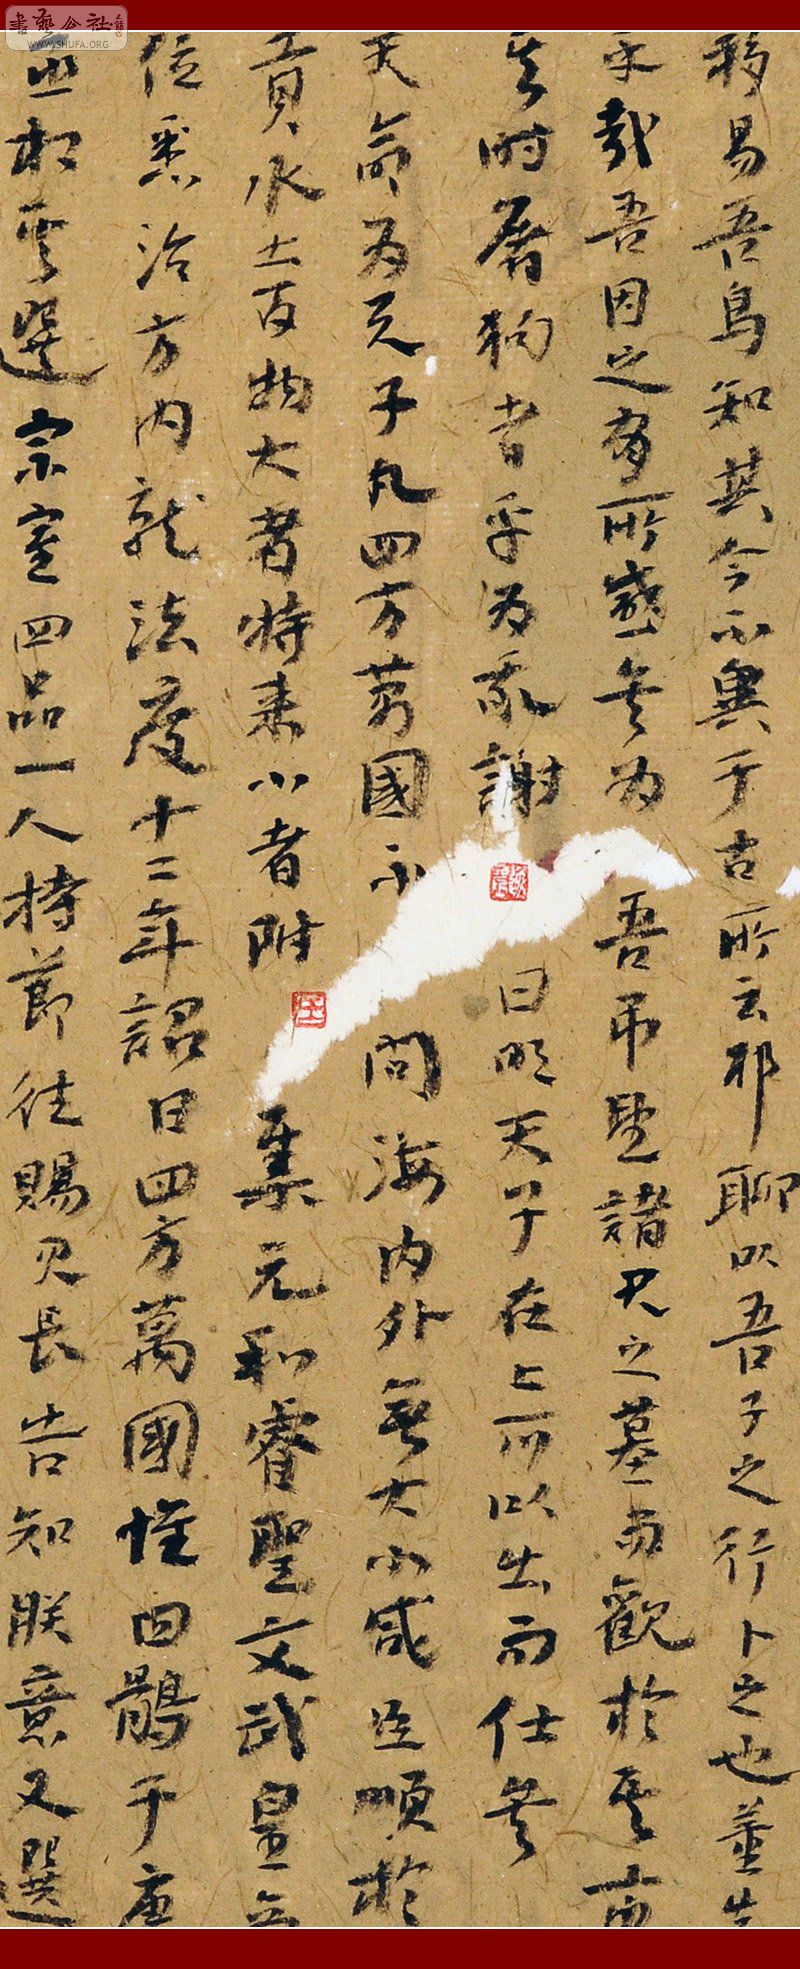 移易吾烏知其今不異于古所云邪聊以吾子之行卜之也董生
乎哉吾因之有所感矣为 吾弔望諸君之墓而觀於其市
其时屠狗者乎为我謝 曰明天子在上可以出而仕矣
天命为天子凡四方萬國不 問海内外無大小咸臣順於
貢水土百物大者特来小者附集元和睿聖文武皇帝
位悉治方内就法度十二年詔曰四方萬國惟回鶻于唐
丞相其選宗室四品一人持節往賜君長告知朕意又選
書藝公社
WWW.SHUFA.ORG